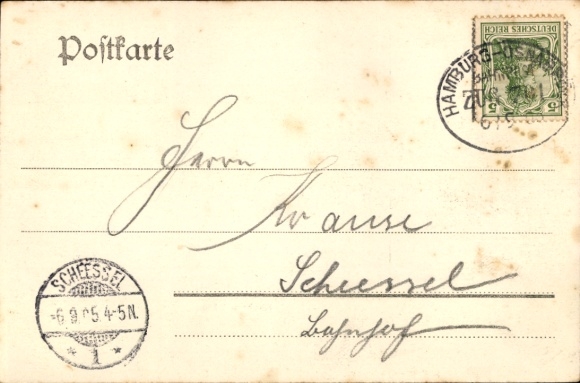 Postkarte
DEUTSCHES REICH
5 5
HAMBURG-OSNABRÜCK
BAHNPOST
ZUG
Herrn
Krause
Scheessel
Bahnhof
SCHEESSEL
-6.9.05.4-5N.
* 1 *